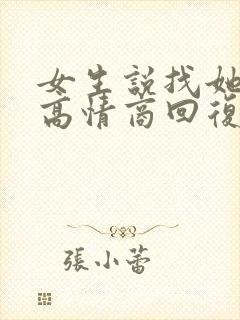 女生説找她
高情商回復
張小蕾